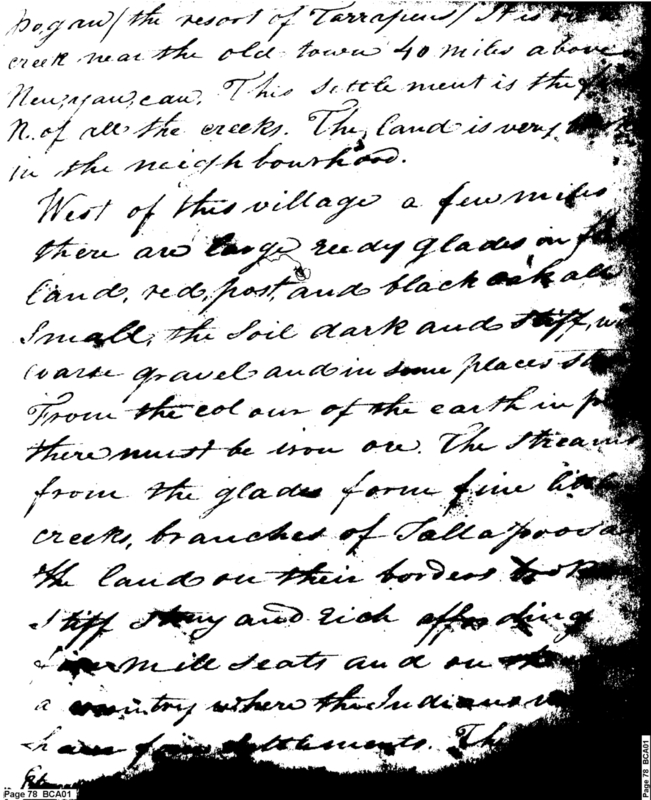 hogau/the resort of Tarrapins/ It is on a
creek near the old town 40 miles above
New,yau,cau. This settlement is the
N. of all the creeks. The land is very
in the neighbourhood.
West of this village a few miles
there are large reedy glades in
land, red, post, and black oak all
Small, the Soil dark and stiff,
coarse gravel and in some places
From the colour of the earth in
there must be iron ore. The streams
from the glades form fine
creeks, branches of Tallapoosa
the land on their borders
stiff stony and rich affording
fine mill seats and on
a country where the Indians
have fine settlements.
Page 78 BCA01
Page 78 BCA01